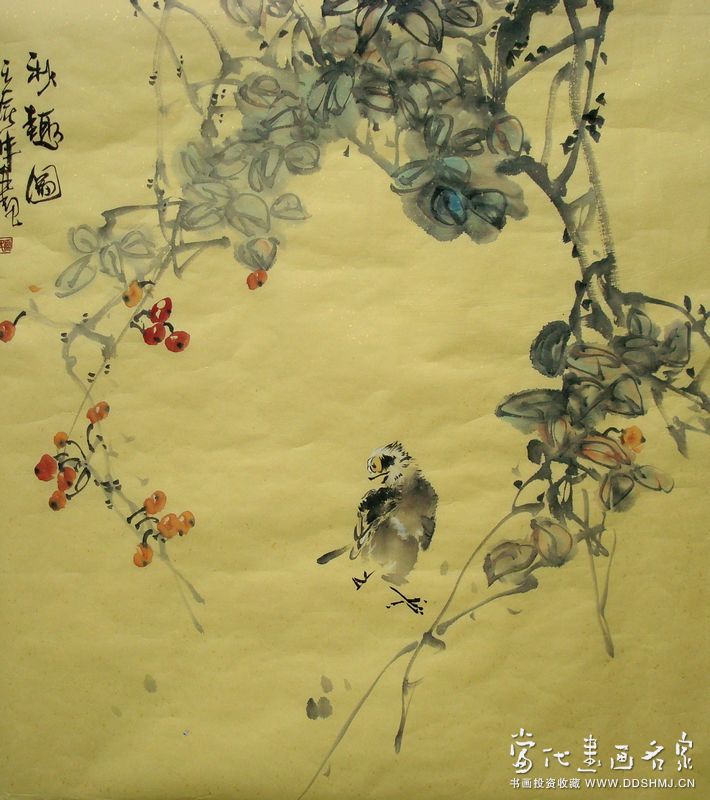 秋趣图
當代書画名家
书画投资收藏 WWW.DDSHMJ.CN